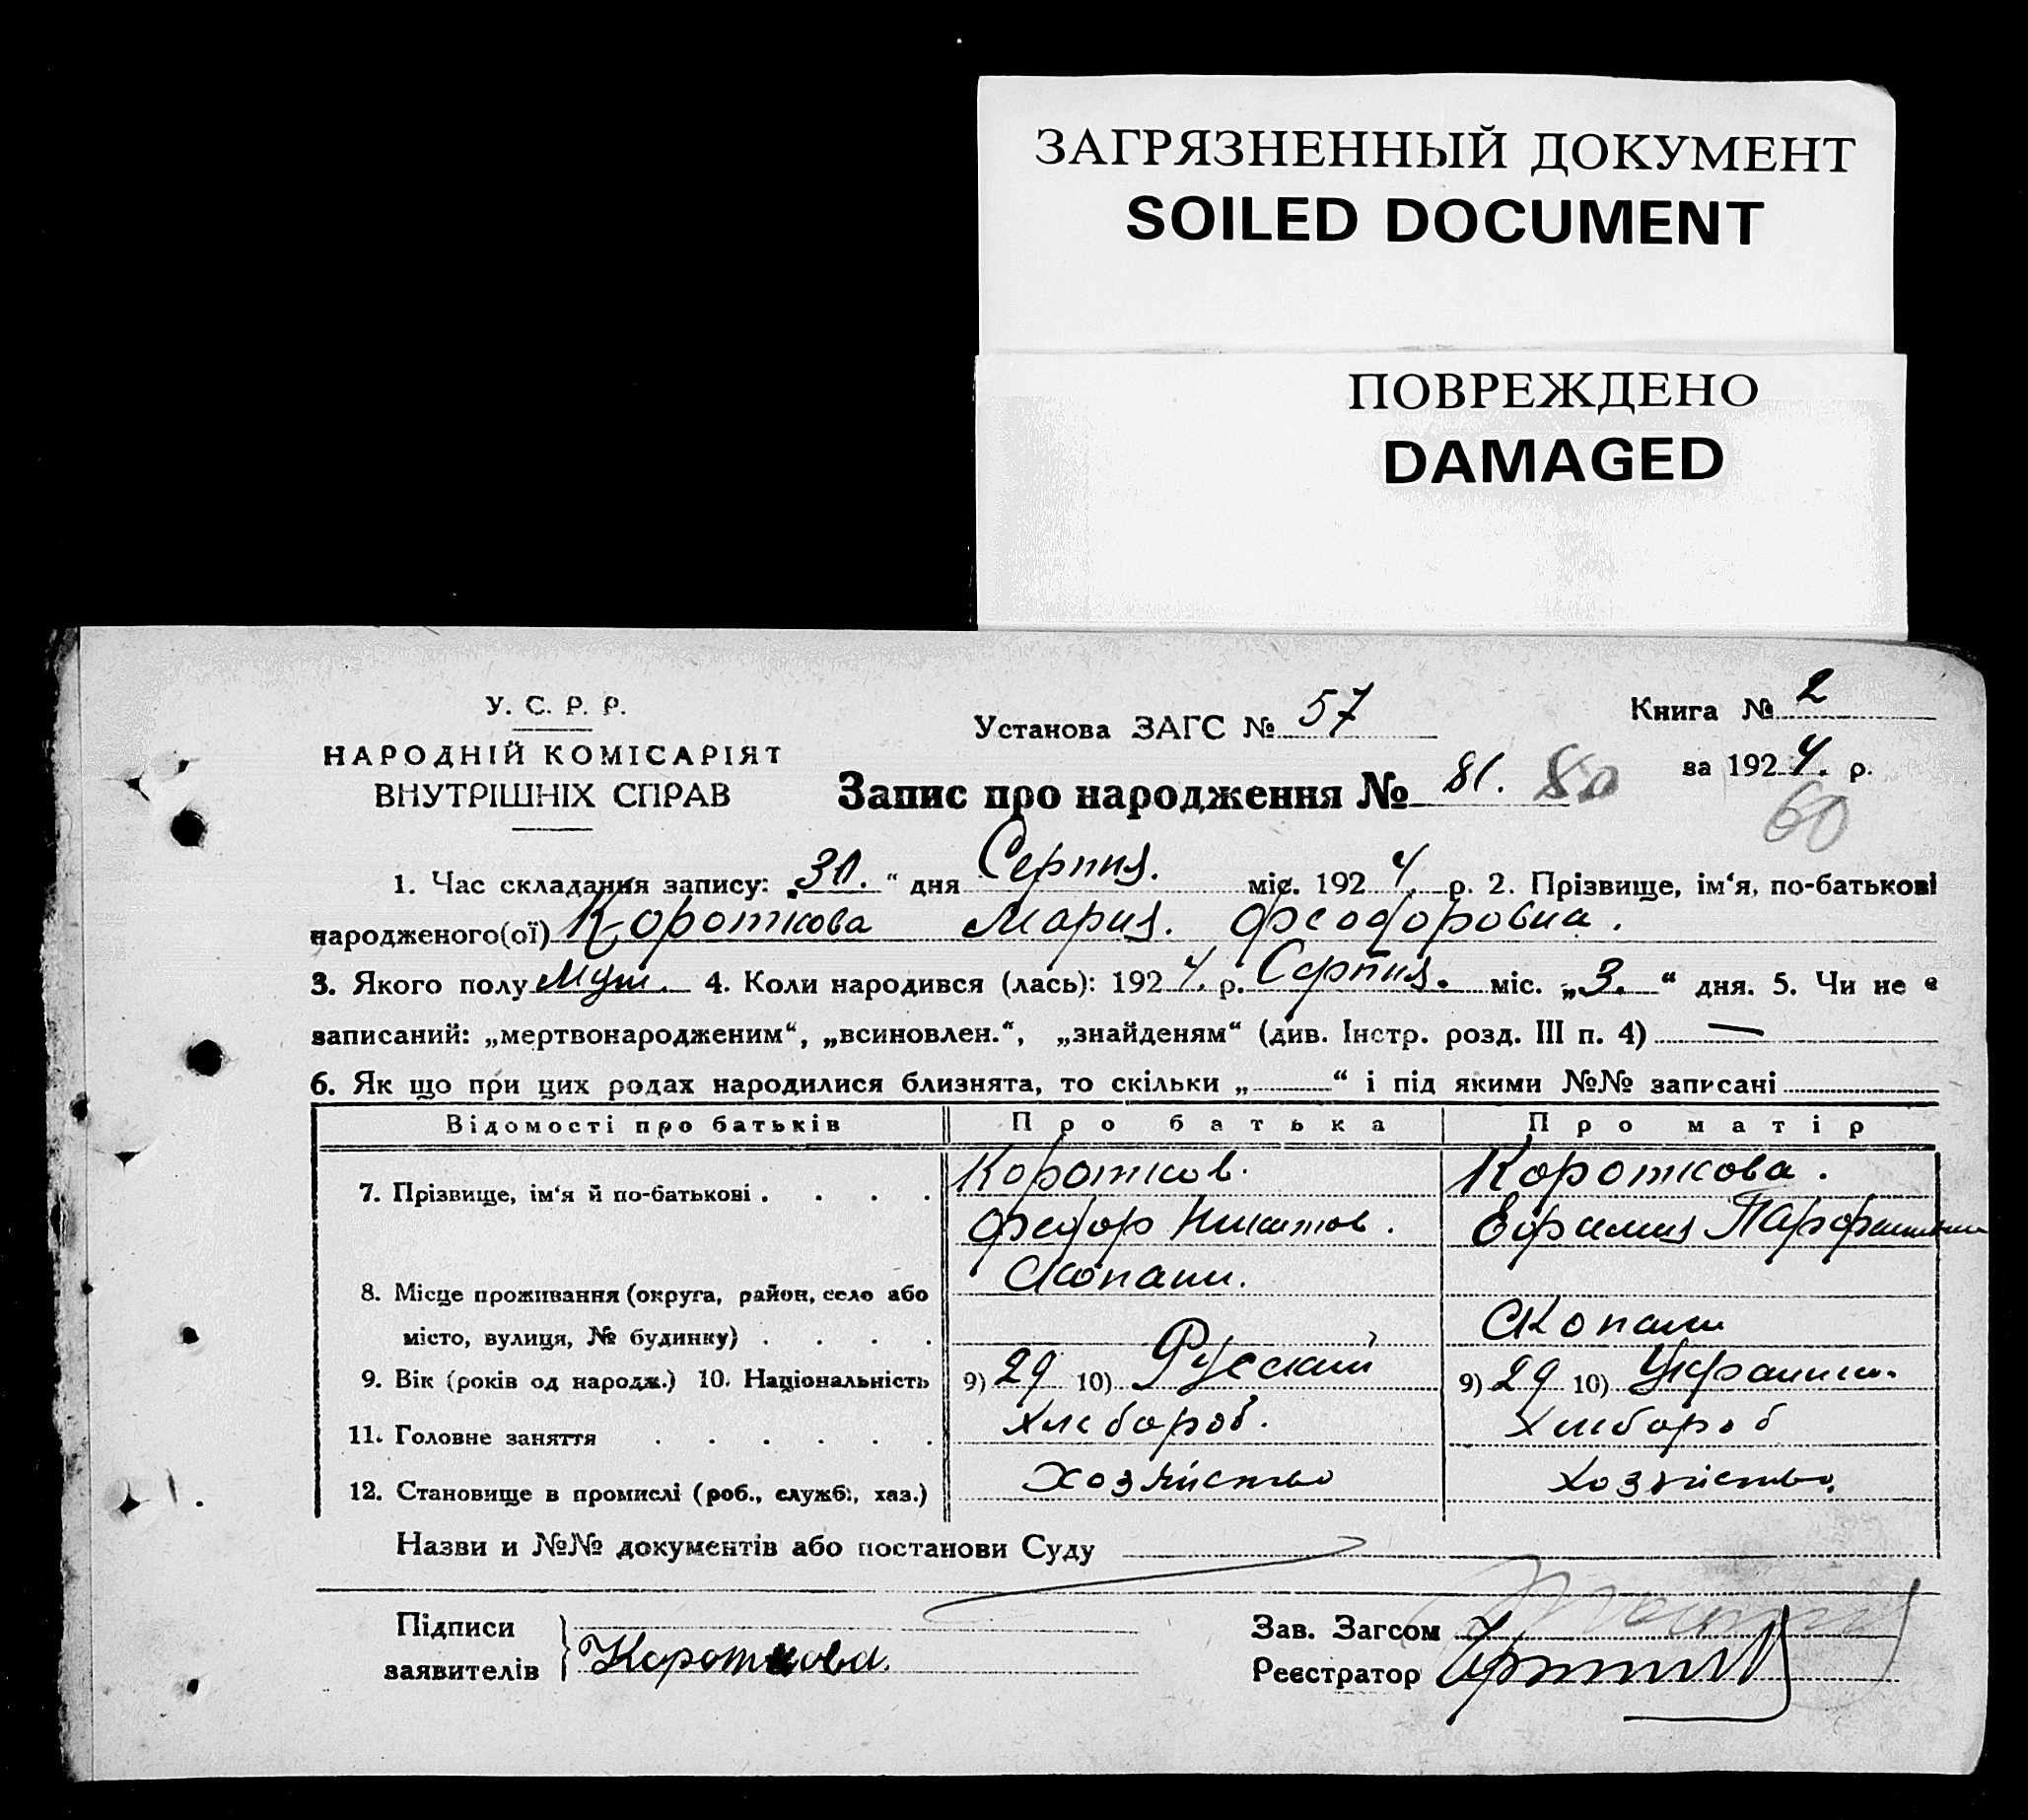 ЗАГРЯЗНЕННЫЙ ДОКУМЕНТ
SOILED DOCUMENT
ПОВРЕЖДЕНО
DAMAGED
У. С. Р. Р.
НАРОДНІЙ КОМІСАРІЯТ
ВНУТРІШНІХ СПРАВ
Установа ЗАГС № 57
Книга № 2
за 1924. р.
Запис про народження № 81. 80
60
1. Час складання запису: „30.“ дня Серпня. міс. 1924 р. 2. Прізвище, ім‘я, по-батькові
народженого(ої) Короткова Мария. Феодоровна.
3. Якого полу Муж. 4. Коли народився (лась): 1924. р. Серпня. міс. „3.“ дня. 5. Чи не є
записаний: „мертвонародженим“, „всиновлен.“, „знайденям“ (див. Інстр. розд. III п. 4) —
6. Як що при цих родах народилися близнята, то скільки „ “ і під якими №№ записані
Відомості про батьків Про батька Про матір
7. Прізвище, ім‘я й по-батькові . . . . Коротков. Короткова.
Федор
8. Місце проживання (округа, район, село або Скопани.
місто, вулиця, № будинку) . . . . Скопани
9. Вік (років од народж.) 10. Національність 9) 29 10) Русский 9) 29 10) Украинк.
11. Головне заняття . . . . . . Хлебороб. Хлибороб
12. Становище в промислі (роб., службі, хаз.) Хозяйство Хозяйство.
Назви и №№ документів або постанови Суду
Підписи
заявителів Короткова.
Зав. Загсом
Реєстратор